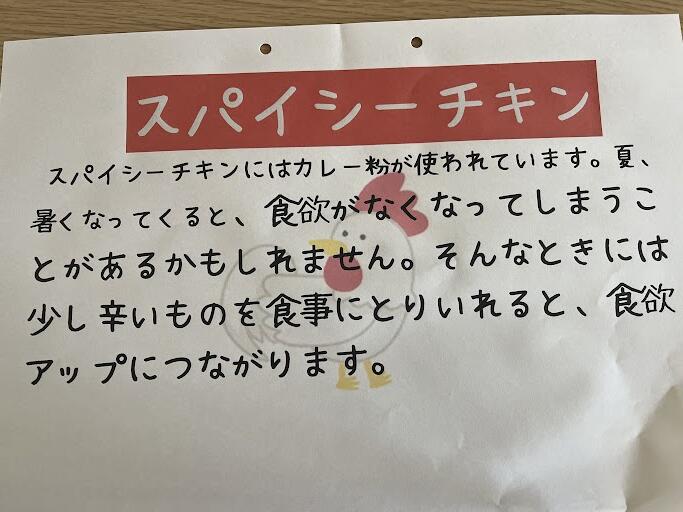 スパイシーチキン
スパイシーチキンにはカレー粉が使われています。夏、
暑くなってくると、食欲がなくなってしまうこ
とがあるかもしれません。そんなときには
少し辛いものを食事にとりいれると、食欲
アップにつながります。